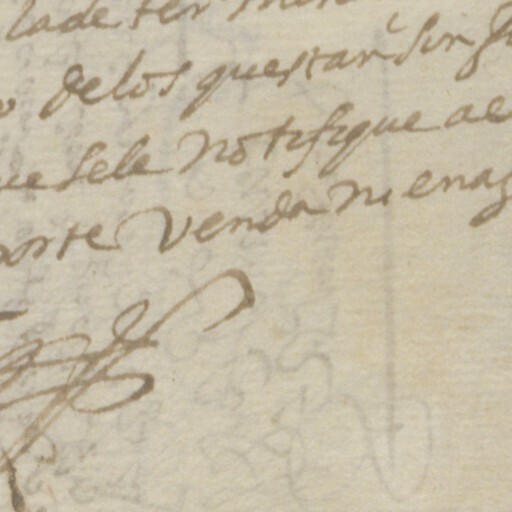 lade ter
delos questan sin
se le notifique al
venda ni enag